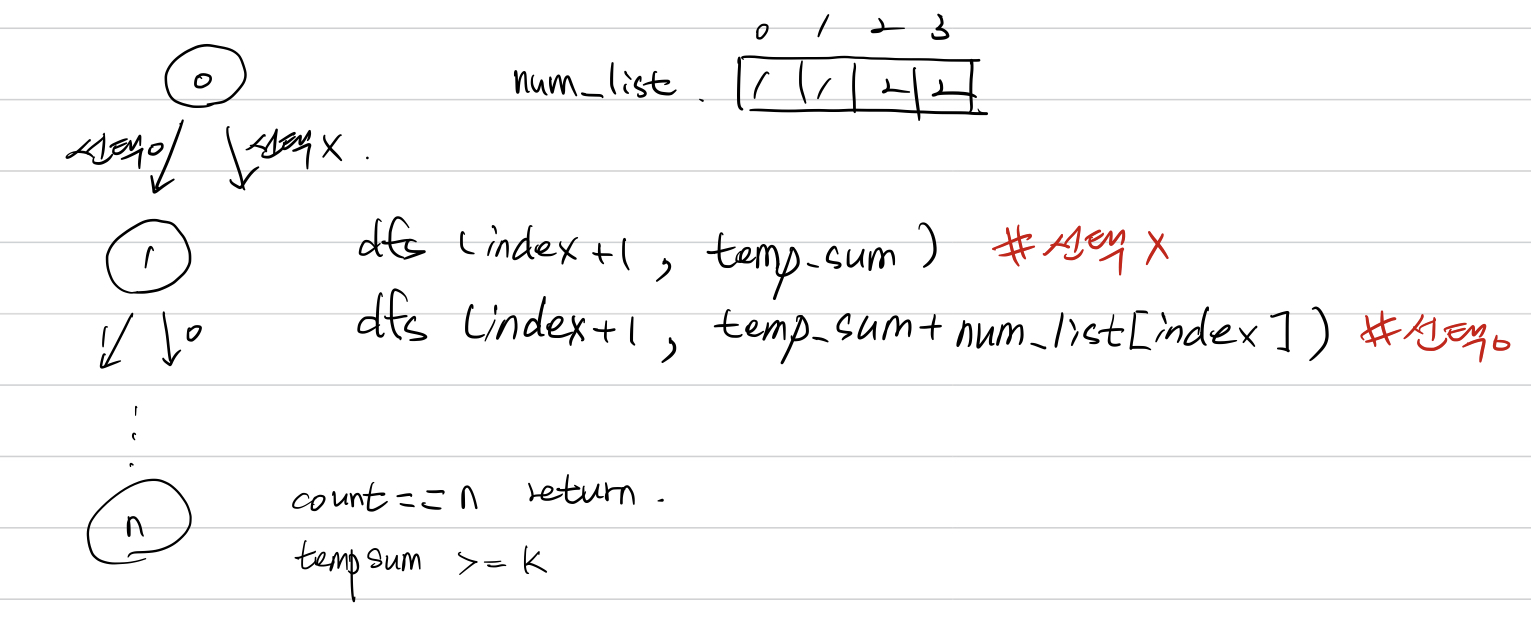 0 1 2 3
0
num_list. 1 1 2 2
선택o 선택x.
1
dfs (index+1, temp_sum) #선택x
dfs (index+1, temp_sum+num_list[index]) #선택o
o
n
count==n return.
tempsum >= K